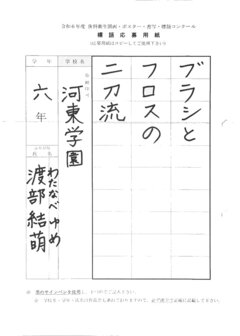 令和6年度 歯科衛生図画・ポスター・書写・標語コンクール
標語応募用紙
(応募用紙はコピーしてご使用下さい)
ブラシと
フロスの
二刀流
学校名
河東学園
学年
六年
氏名
わたなべゆめ
渡部結萌